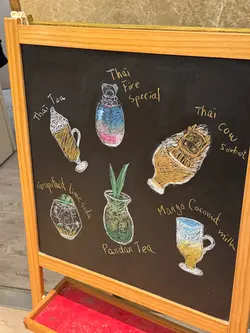 Thai
Fire
Special
Thai Tea
Thai
Cow
Sorbet
Grapefruit lime soda
Pandan Tea
Mango Coconut
milk